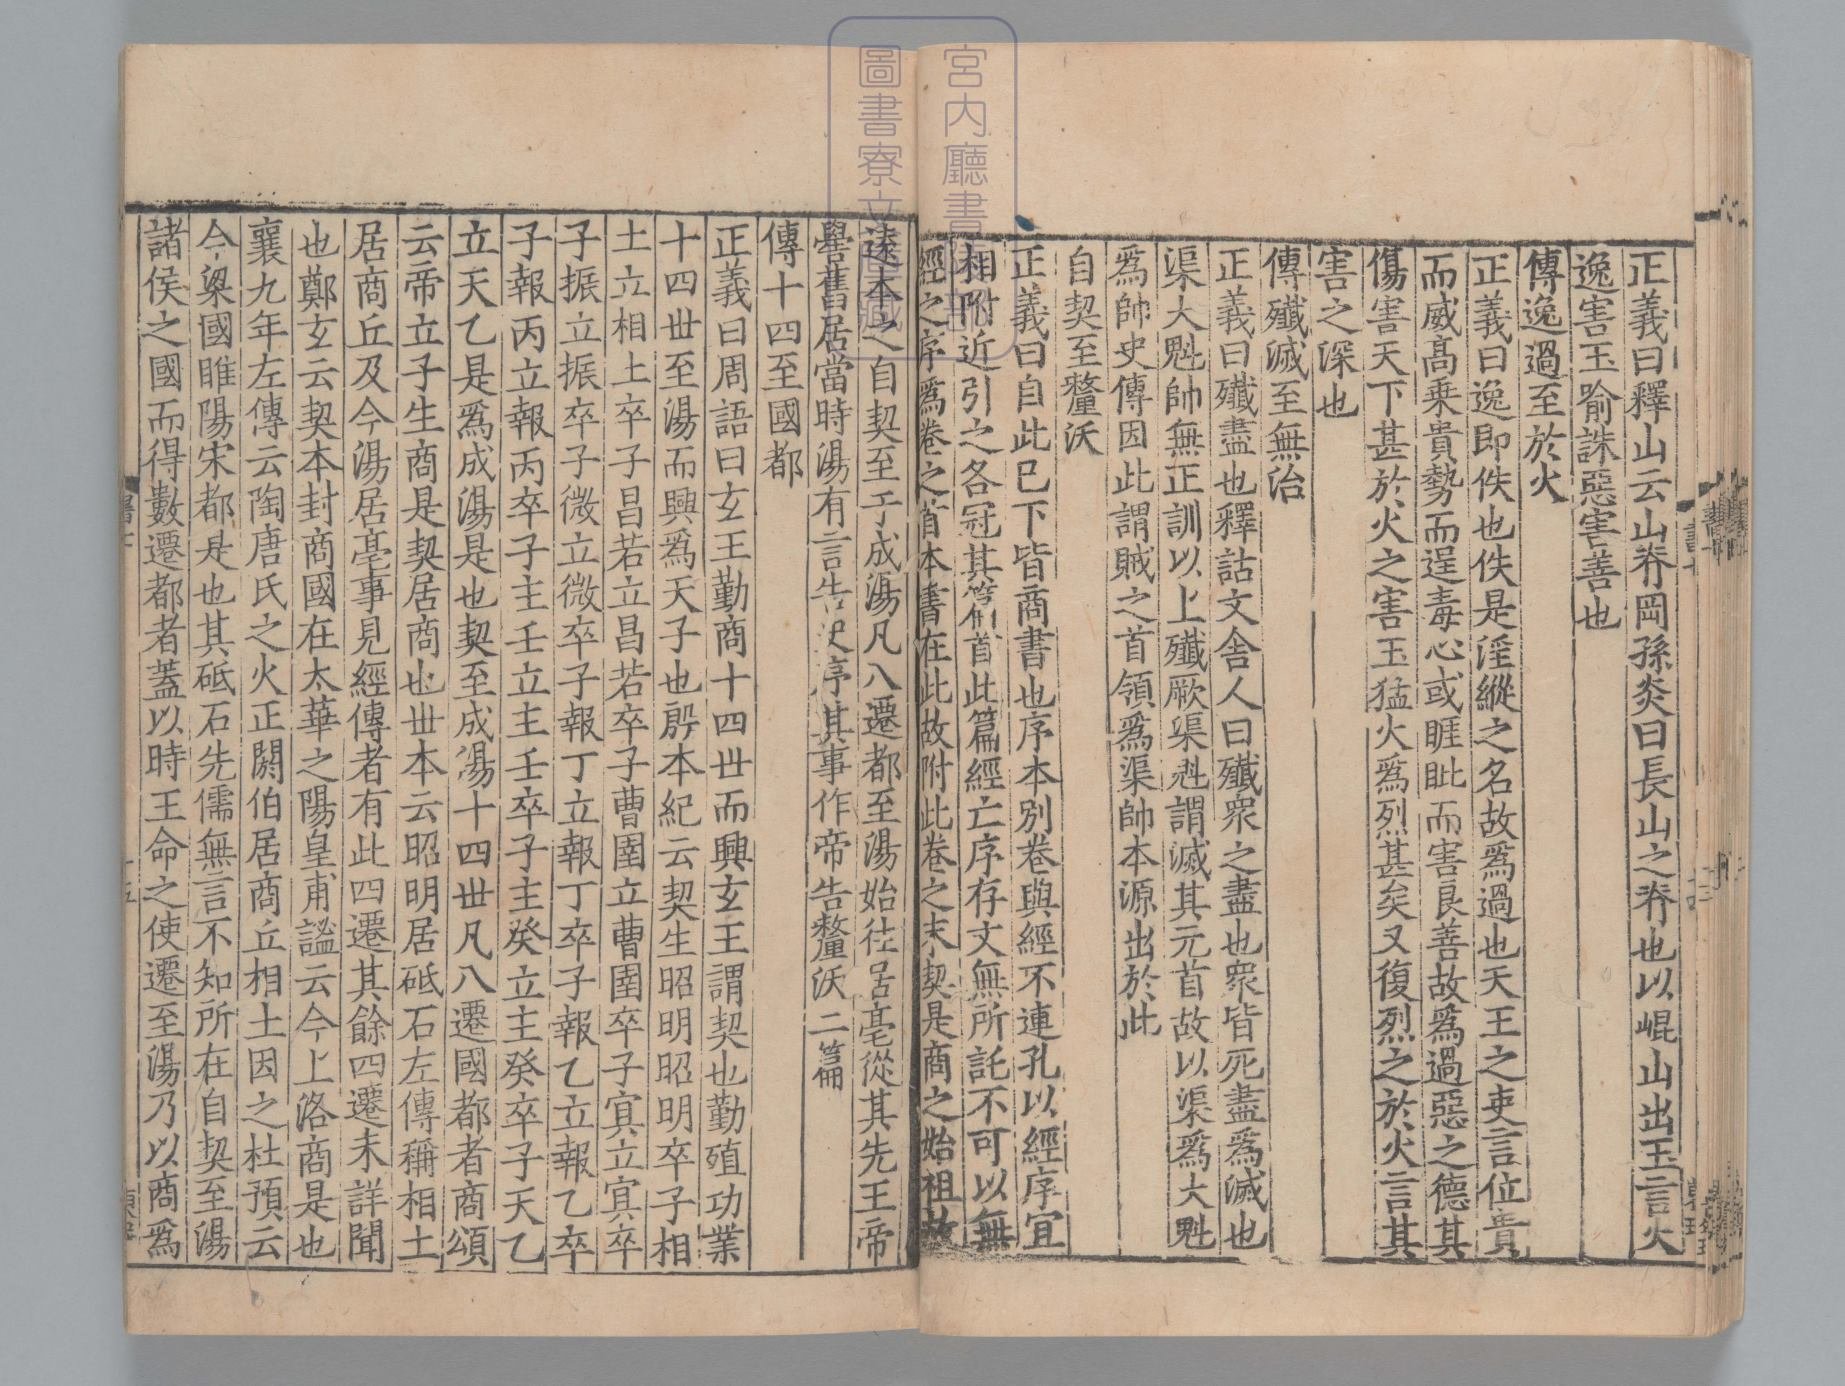 正義曰釋山云山脊岡孫炎曰長山之脊也以崐山出玉言火
逸害玉喻誅惡害善也
傳逸過至於火
正義曰逸即佚也佚是淫縱之名故爲過也天王之吏言位貴
而威高乗貴勢而逞毒心或睚眦而害良善故爲過惡之德其
傷害天下甚於火之害玉猛火爲烈甚矣又復烈之於火言其
害之深也
傳殲滅至無治
正義曰殲盡也釋詁文舎人曰殲衆之盡也衆皆死盡爲滅也
渠大魁帥無正訓以上殲厥渠魁謂滅其元首故以渠爲大魁
爲帥史傳因此謂賊之首領爲渠帥本源出於此
自契至釐沃
正義曰自此已下皆商書也序本別卷與經不連孔以經序宜
相附近引之各冠其篇首此篇經亡序存文無所託不可以無
經之序爲卷之首本書在此故附此卷之末契是商之始祖故
逺本之自契至于成湯凡八遷都至湯始往居亳從其先王帝
嚳舊居當時湯有言告史序其事作帝告釐沃二篇
傳十四至國都
正義曰周語曰玄王勤商十四丗而興玄王謂契也勤殖功業
十四丗至湯而興爲天子也殷本紀云契生昭明昭明卒子相
土立相土卒子昌若立昌若卒子曹圉立曹圉卒子㝠立㝠卒
子振立振卒子微立微卒子報丁立報丁卒子報乙立報乙卒
子報丙立報丙卒子主壬立主壬卒子主癸立主癸卒子天乙
立天乙是爲成湯是也契至成湯十四丗凡八遷國都者商頌
云帝立子生商是契居商也丗本云昭明居砥石左傳稱相土
居商丘及今湯居亳事見經傳者有此四遷其餘四遷未詳聞
也鄭玄云契本封商國在太華之陽皇甫謐云今上洛商是也
襄九年左傳云陶唐氏之火正閼伯居商丘相土因之杜預云
今梁國睢陽宋都是也其砥石先儒無言不知所在自契至湯
諸侯之國而得數遷都者蓋以時王命之使遷至湯乃以商爲